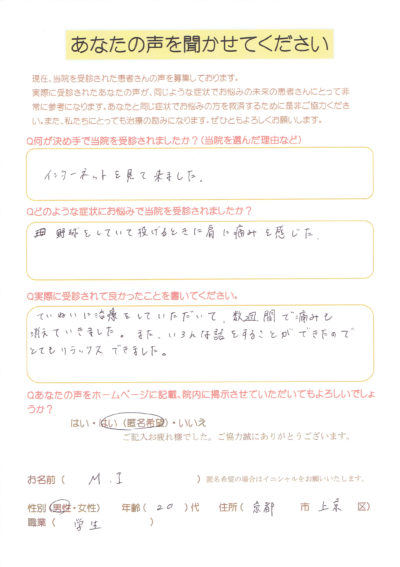 あなたの声を聞かせてください
現在、当院を受診された患者さんの声を募集しております。
実際に受診されたあなたの声が、同じような症状でお悩みの未来の患者さんにとって非
常に参考になります。あなたと同じ症状でお悩みの方を救済するために是非ご協力くださ
い。また、私たちにとっても治療の励みになります。ぜひともよろしくお願いします。
Q何が決め手で当院を受診されましたか?(当院を選んだ理由など)
インターネットを見て来ました。
Qどのような症状にお悩みで当院を受診されましたか?
野球をしていて投げるときに肩に痛みを感じた。
Q実際に受診されて良かったことを書いてください。
ていねいに治療をしていただいて、数週間で痛みも
消えていきました。また、いろんな話をすることができたので
とてもリラックスできました。
Qあなたの声をホームページに記載、院内に掲示させていただいてもよろしいでしょ
うか?
はい・はい(匿名希望)・いいえ
ご記入お疲れ様でした。ご協力誠にありがとうございます。
お名前( M.I )匿名希望の場合はイニシャルをお願いいたします。
性別(男性・女性) 年齢(20)代 住所(京都 市 上京 区)
職業( 学生 )